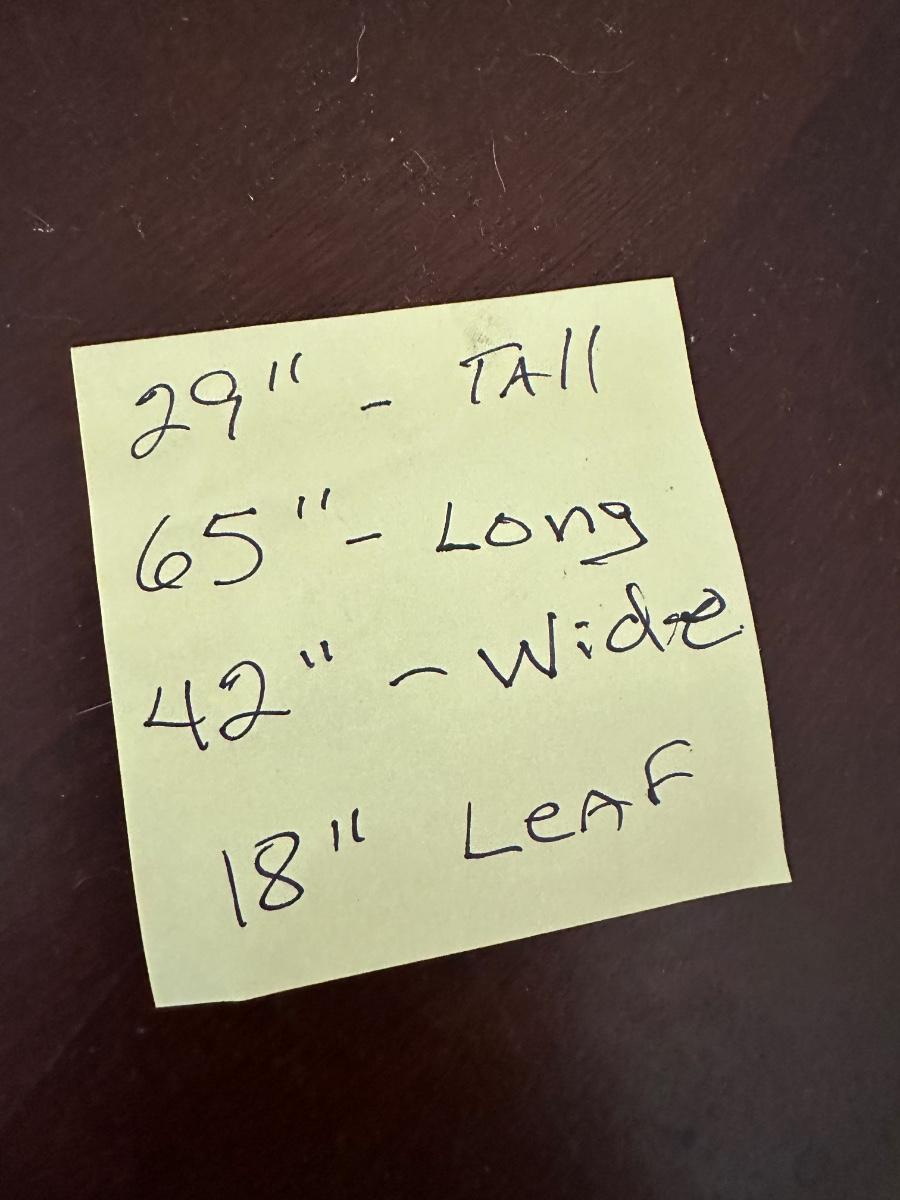 29" - TAll
65" - Long
42" - Wide
18" LeAF